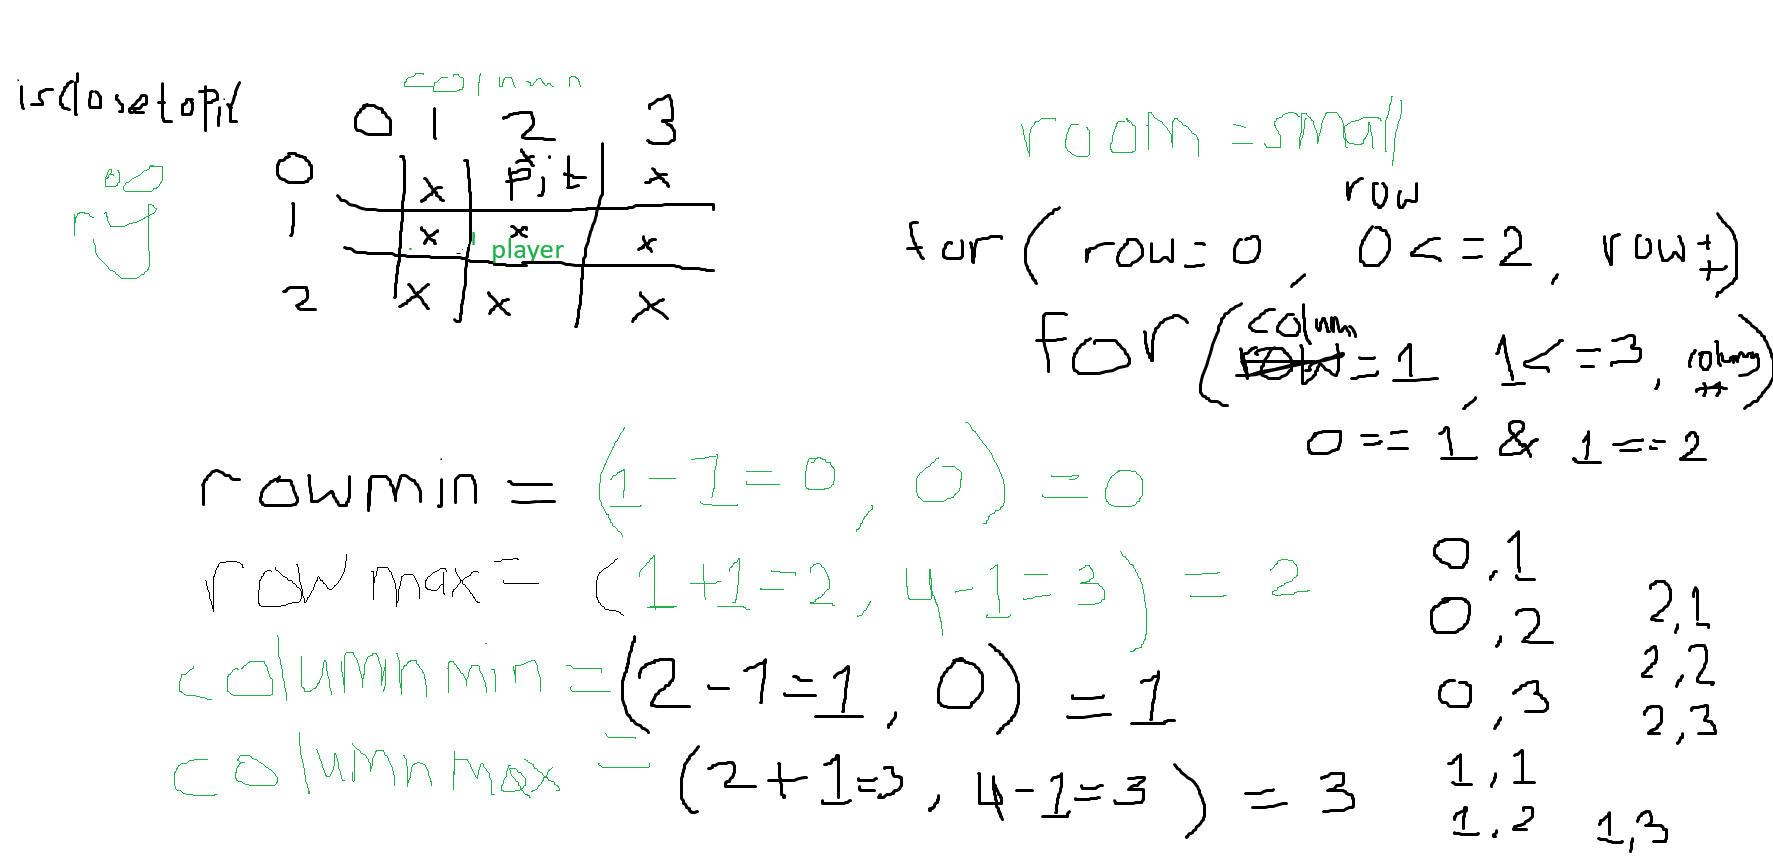 isclosetopit
column
0 1 2 3
0 x x pit x
1 x x player x
2 x x x
room = small
row
for ( row = 0 , 0 < = 2 , row ++ )
for ( column = 1 , 1 < = 3 , column ++ )
0 == 1 & 1 == 2
rowmin = (1-1=0, 0) = 0
row max = (1+1=2, 4-1=3) = 2
column min = (2-1=1, 0) = 1
column max = (2+1=3, 4-1=3) = 3
0,1
0,2
0,3
1,1
1,2
1,3
2,1
2,2
2,3